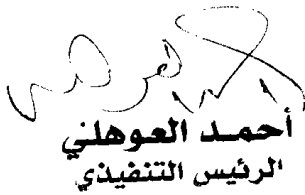 أحمد العوهلي
الرئيس التنفيذي